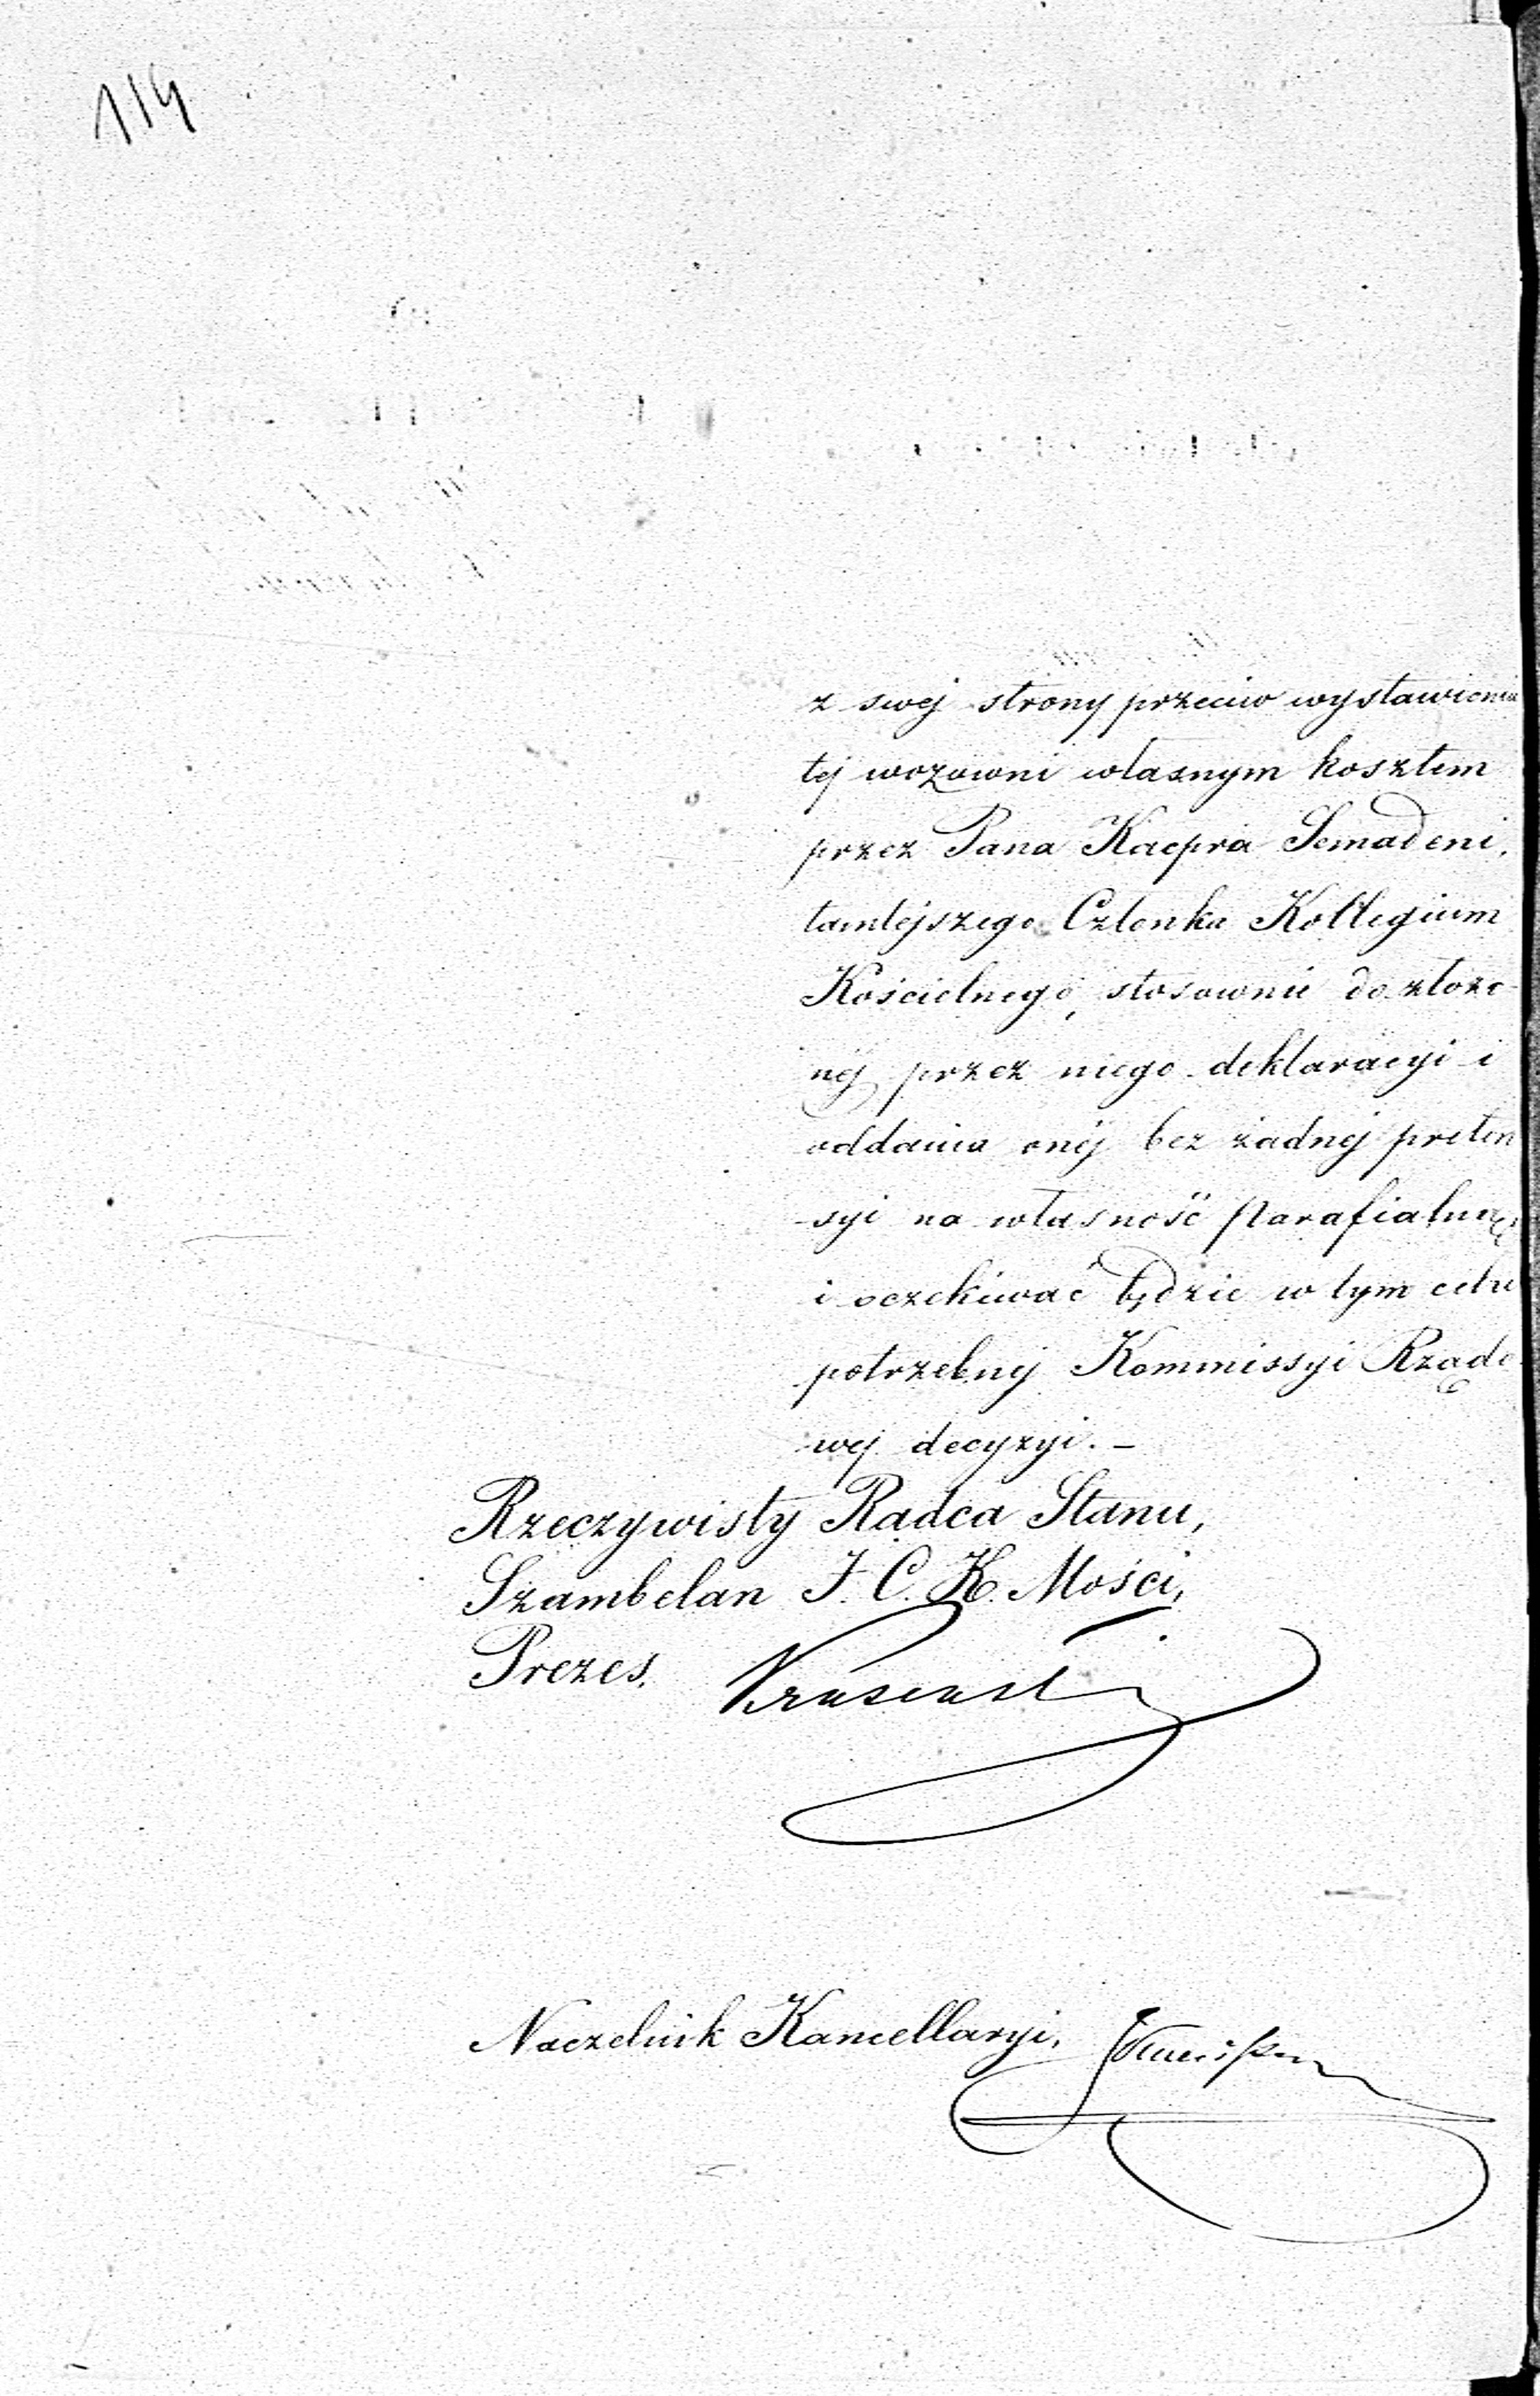 114
z swej strony przeciw wystawieniu
tej wozowni własnym kosztem
przez Pana Kacpra Semadeni,
tamtejszego Członka Kollegium
Kościelnego, stosownie do złożo-
nej przez niego deklaracyi i
oddania onej bez żadnej preten
syi na własność parafialną,
i oczekiwać będzie w tym celu
potrzebnej Kommissyi Rządo-
wej decyzyi. –
Rzeczywisty Radca Stanu,
Szambelan J. C. K. Mości,
Prezes.
Naczelnik Kancellaryi,